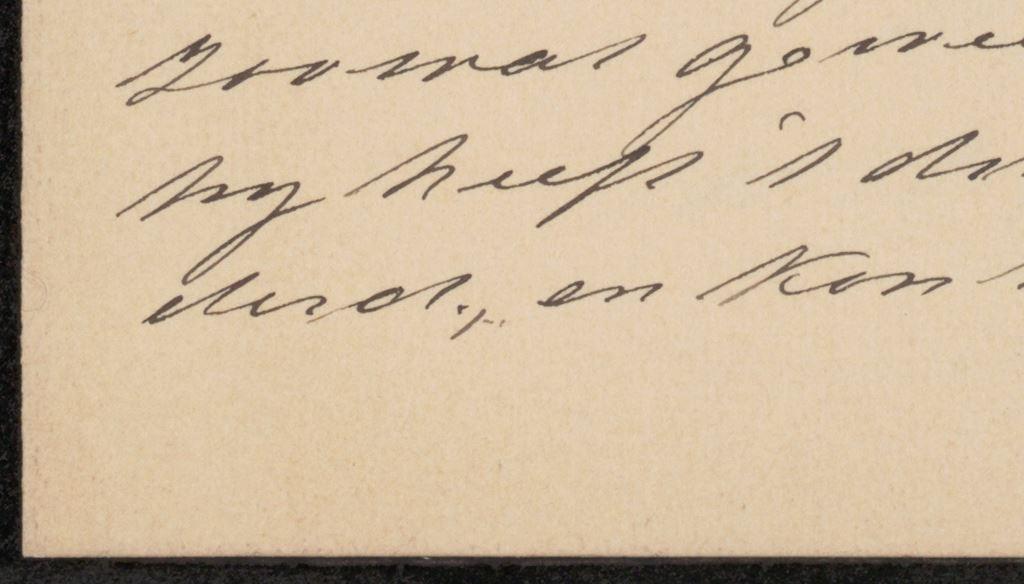 zoo was gewe
hy heeft 't du
derd., en kon